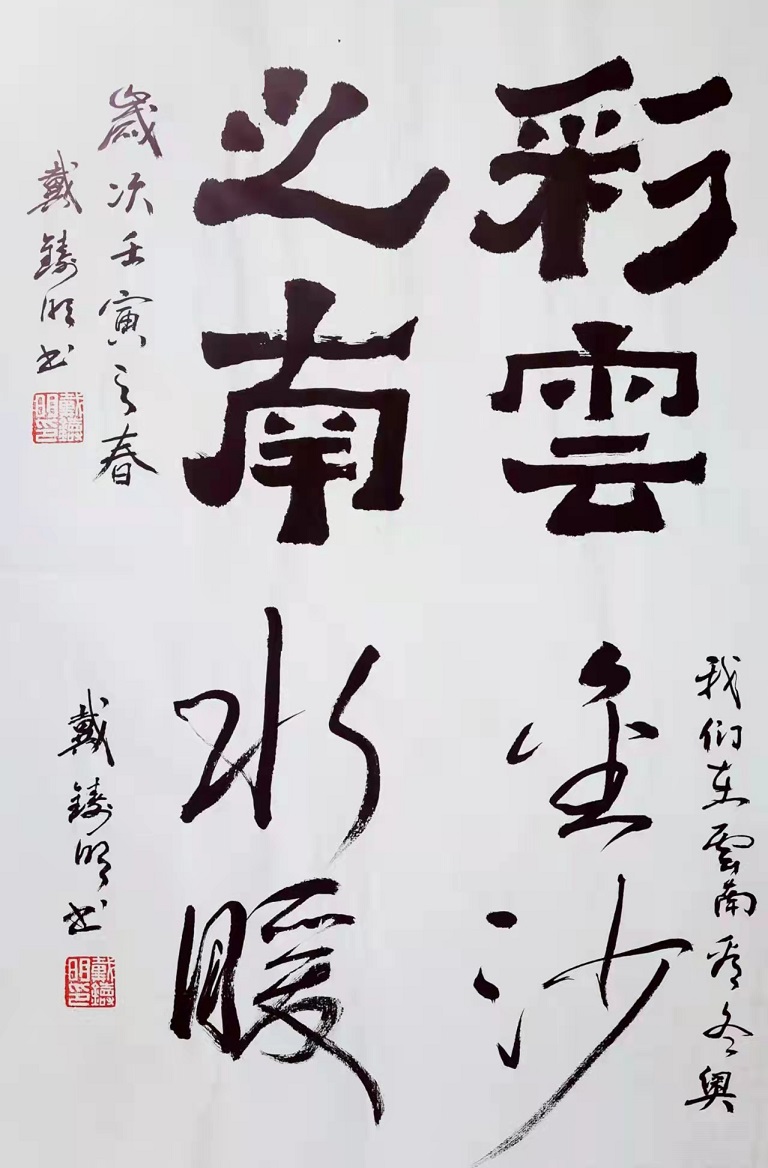 彩雲
之南
歲次壬寅之春
戴鑄明书
戴鑄明印
我们在雲南看冬奥
金沙
水暖
戴鑄明书
戴鑄明印